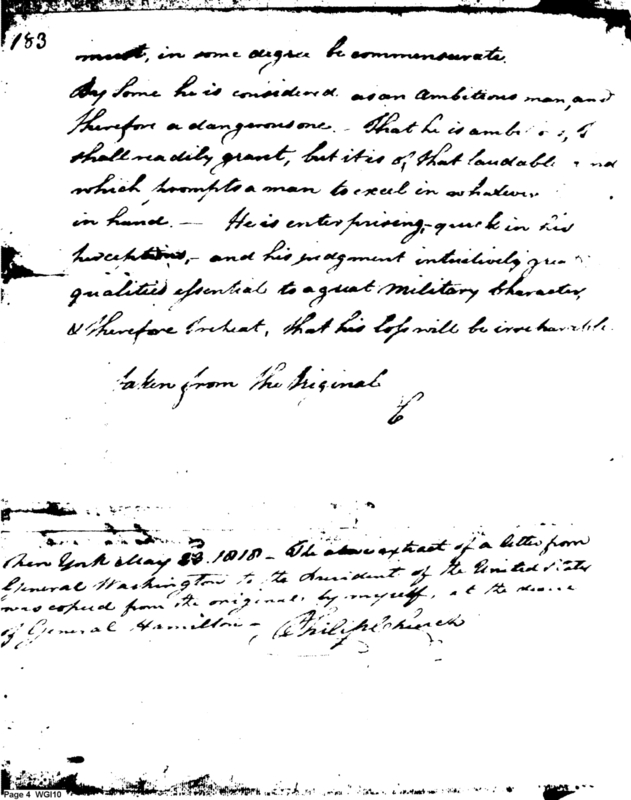 183
must, in some degree be commensurate.
By Some he is considered as an Ambitious man, and
therefore a dangerous one. - That he is I
shall readily grant, but it is of that laudable
which prompts a man to excel in whatever
in hand. — He is enterprising, - quick in his
perceptions, - and his judgment intuitively
qualities essential to a great Military Character,
& therefore I repeat, that his loss will be irreparable
taken from the Original
C
New York May 23. 1818 - The above extract of a letter from
General Washington to the President of the United States
was copied from the original, by myself, at the desire
of General Hamilton - Philip Church
Page 4 WGI10